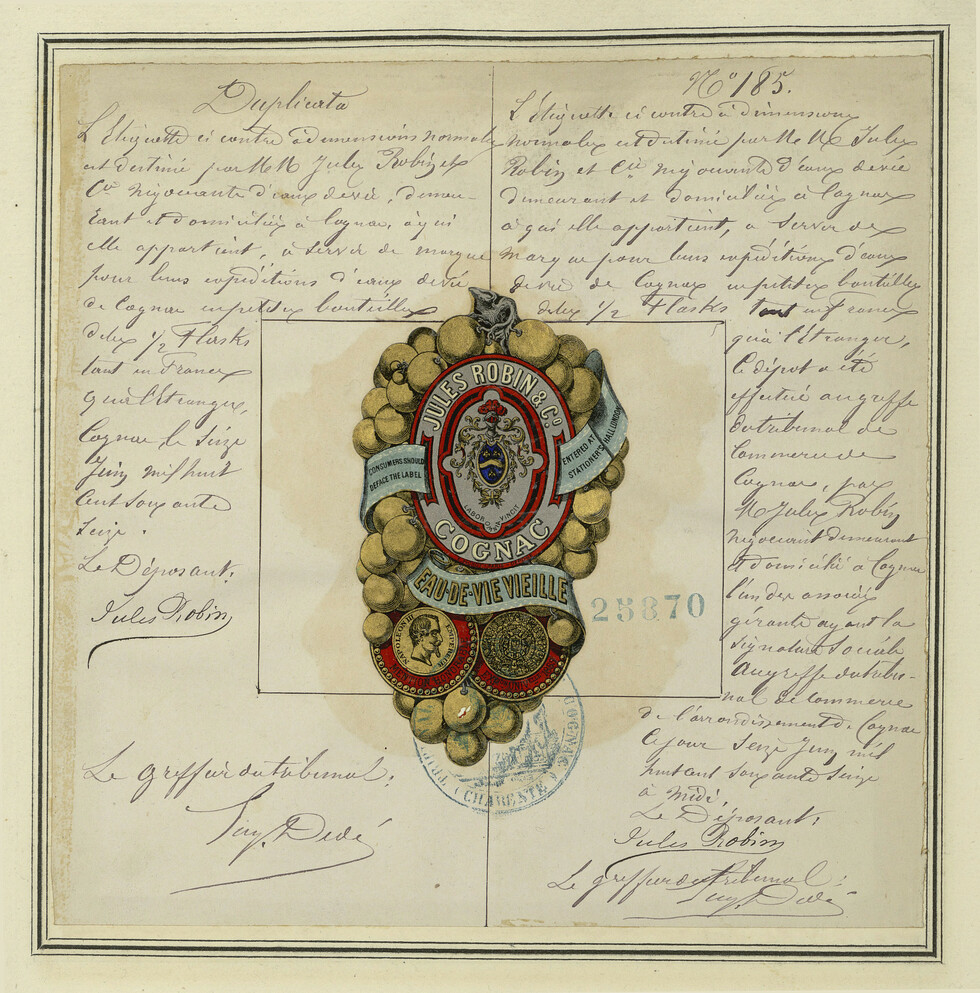 Duplicata
L'Etiquette ci contre à dimensions normales
est destinée par M M Jules Robin et
Cie négociants d'eaux de vie, demeu-
rant et domiciliés à Cognac, à qui
elle appartient, à servir de marque
pour leurs expéditions d'eaux de vie
de Cognac en petites bouteilles
dites 1/2 Flasks
tant en France
qu'à l'Etranger,
Cognac le seize
Juin mil huit
cent soixante
seize.
Le Déposant,
Jules Robin
Le greffier du tribunal,
No 185.
L'étiquette ci contre à dimensions
normales est destinée par M M Jules
Robin et Cie négociants d'eaux de vie
demeurant et domiciliés à Cognac
à qui elle appartient, à servir de
marque pour leurs expéditions d'eaux
de vie de Cognac en petites bouteilles
dites 1/2 Flasks tant en France
qu'à l'Etranger,
le dépôt a été
effectué au greffe
du tribunal de
Commerce de
Cognac, par
M Jules Robin
négociant demeurant
et domicilié à Cognac
l'un des associés
gérants ayant la
signature sociale
Au greffe du tribu-
nal de commerce
de l'arrondissement de Cognac
ce jour seize Juin mil
huit cent soixante seize
à midi,
Le Déposant,
Jules Robin
Le greffier du tribunal,
JULES ROBIN & Co
CONSUMERS SHOULD
DEFACE THE LABEL
ENTERED AT
STATIONER'S HALL LONDON
LABOR OMNIA VINCIT
COGNAC
EAU-DE-VIE VIEILLE
25870
NAPOLEON III EMPEREUR
D'COGNAC
(CHARENTE)